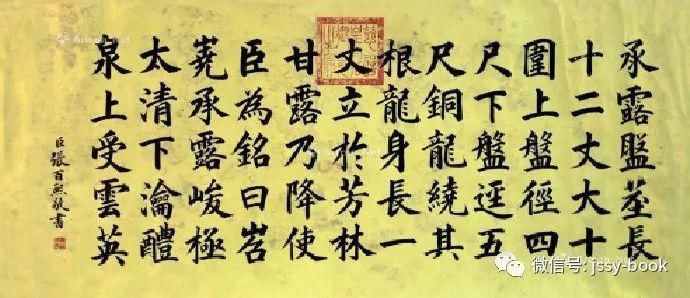 承露盤莖長
十二丈大十
圍上盤徑四
尺下盤逕五
尺銅龍繞其
根龍身長一
丈立於芳林
甘露乃降使
臣為銘曰岧
嶤承露峻極
太清下瀹醴
泉上受雲英
臣張百熙敬書
微信号: jssy-book